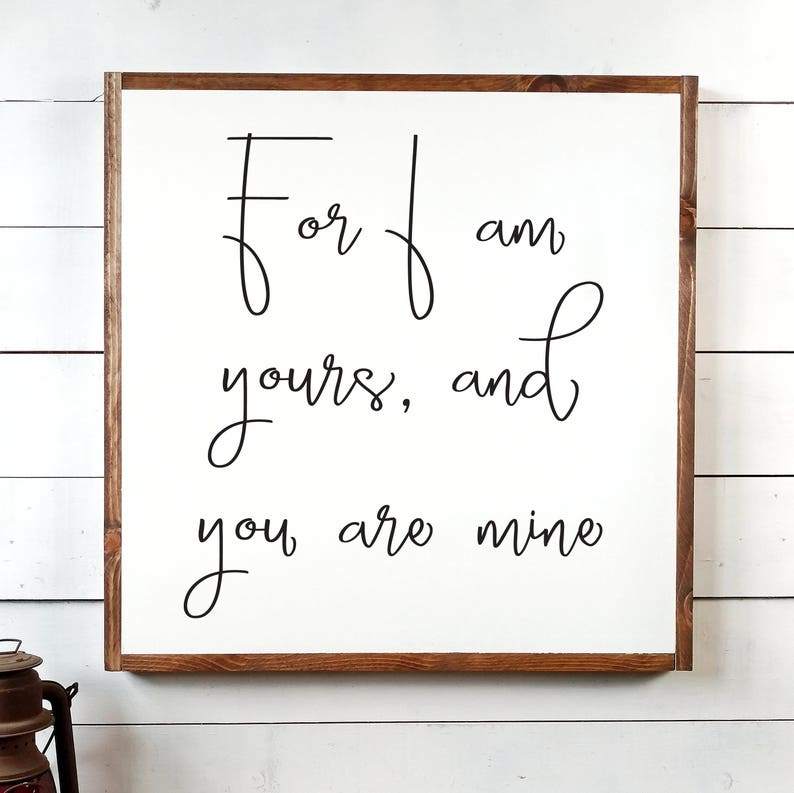 For I am
yours, and
you are mine